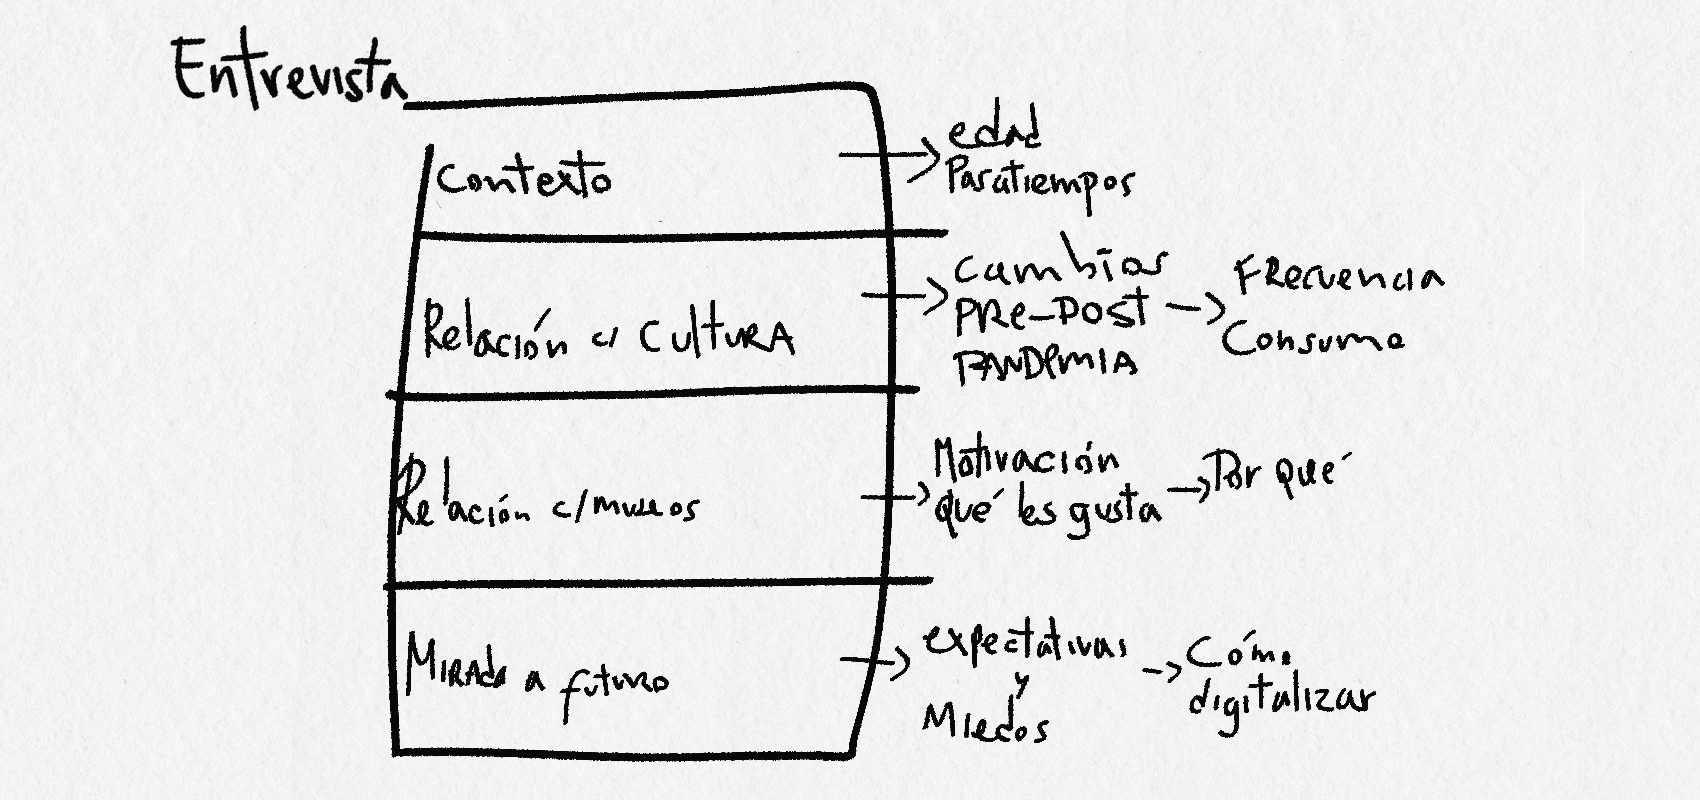 Entrevista
Contexto
edad
Pasatiempos
Relación c/ CULTURA
Cambios
PRE-POST
PANDEMIA
FRecuencia
Consumo
Relación c/museos
Motivación
qué les gusta
Por qué
MIRADA a futuro
expectativas
y
Miedos
Cómo
digitalizar